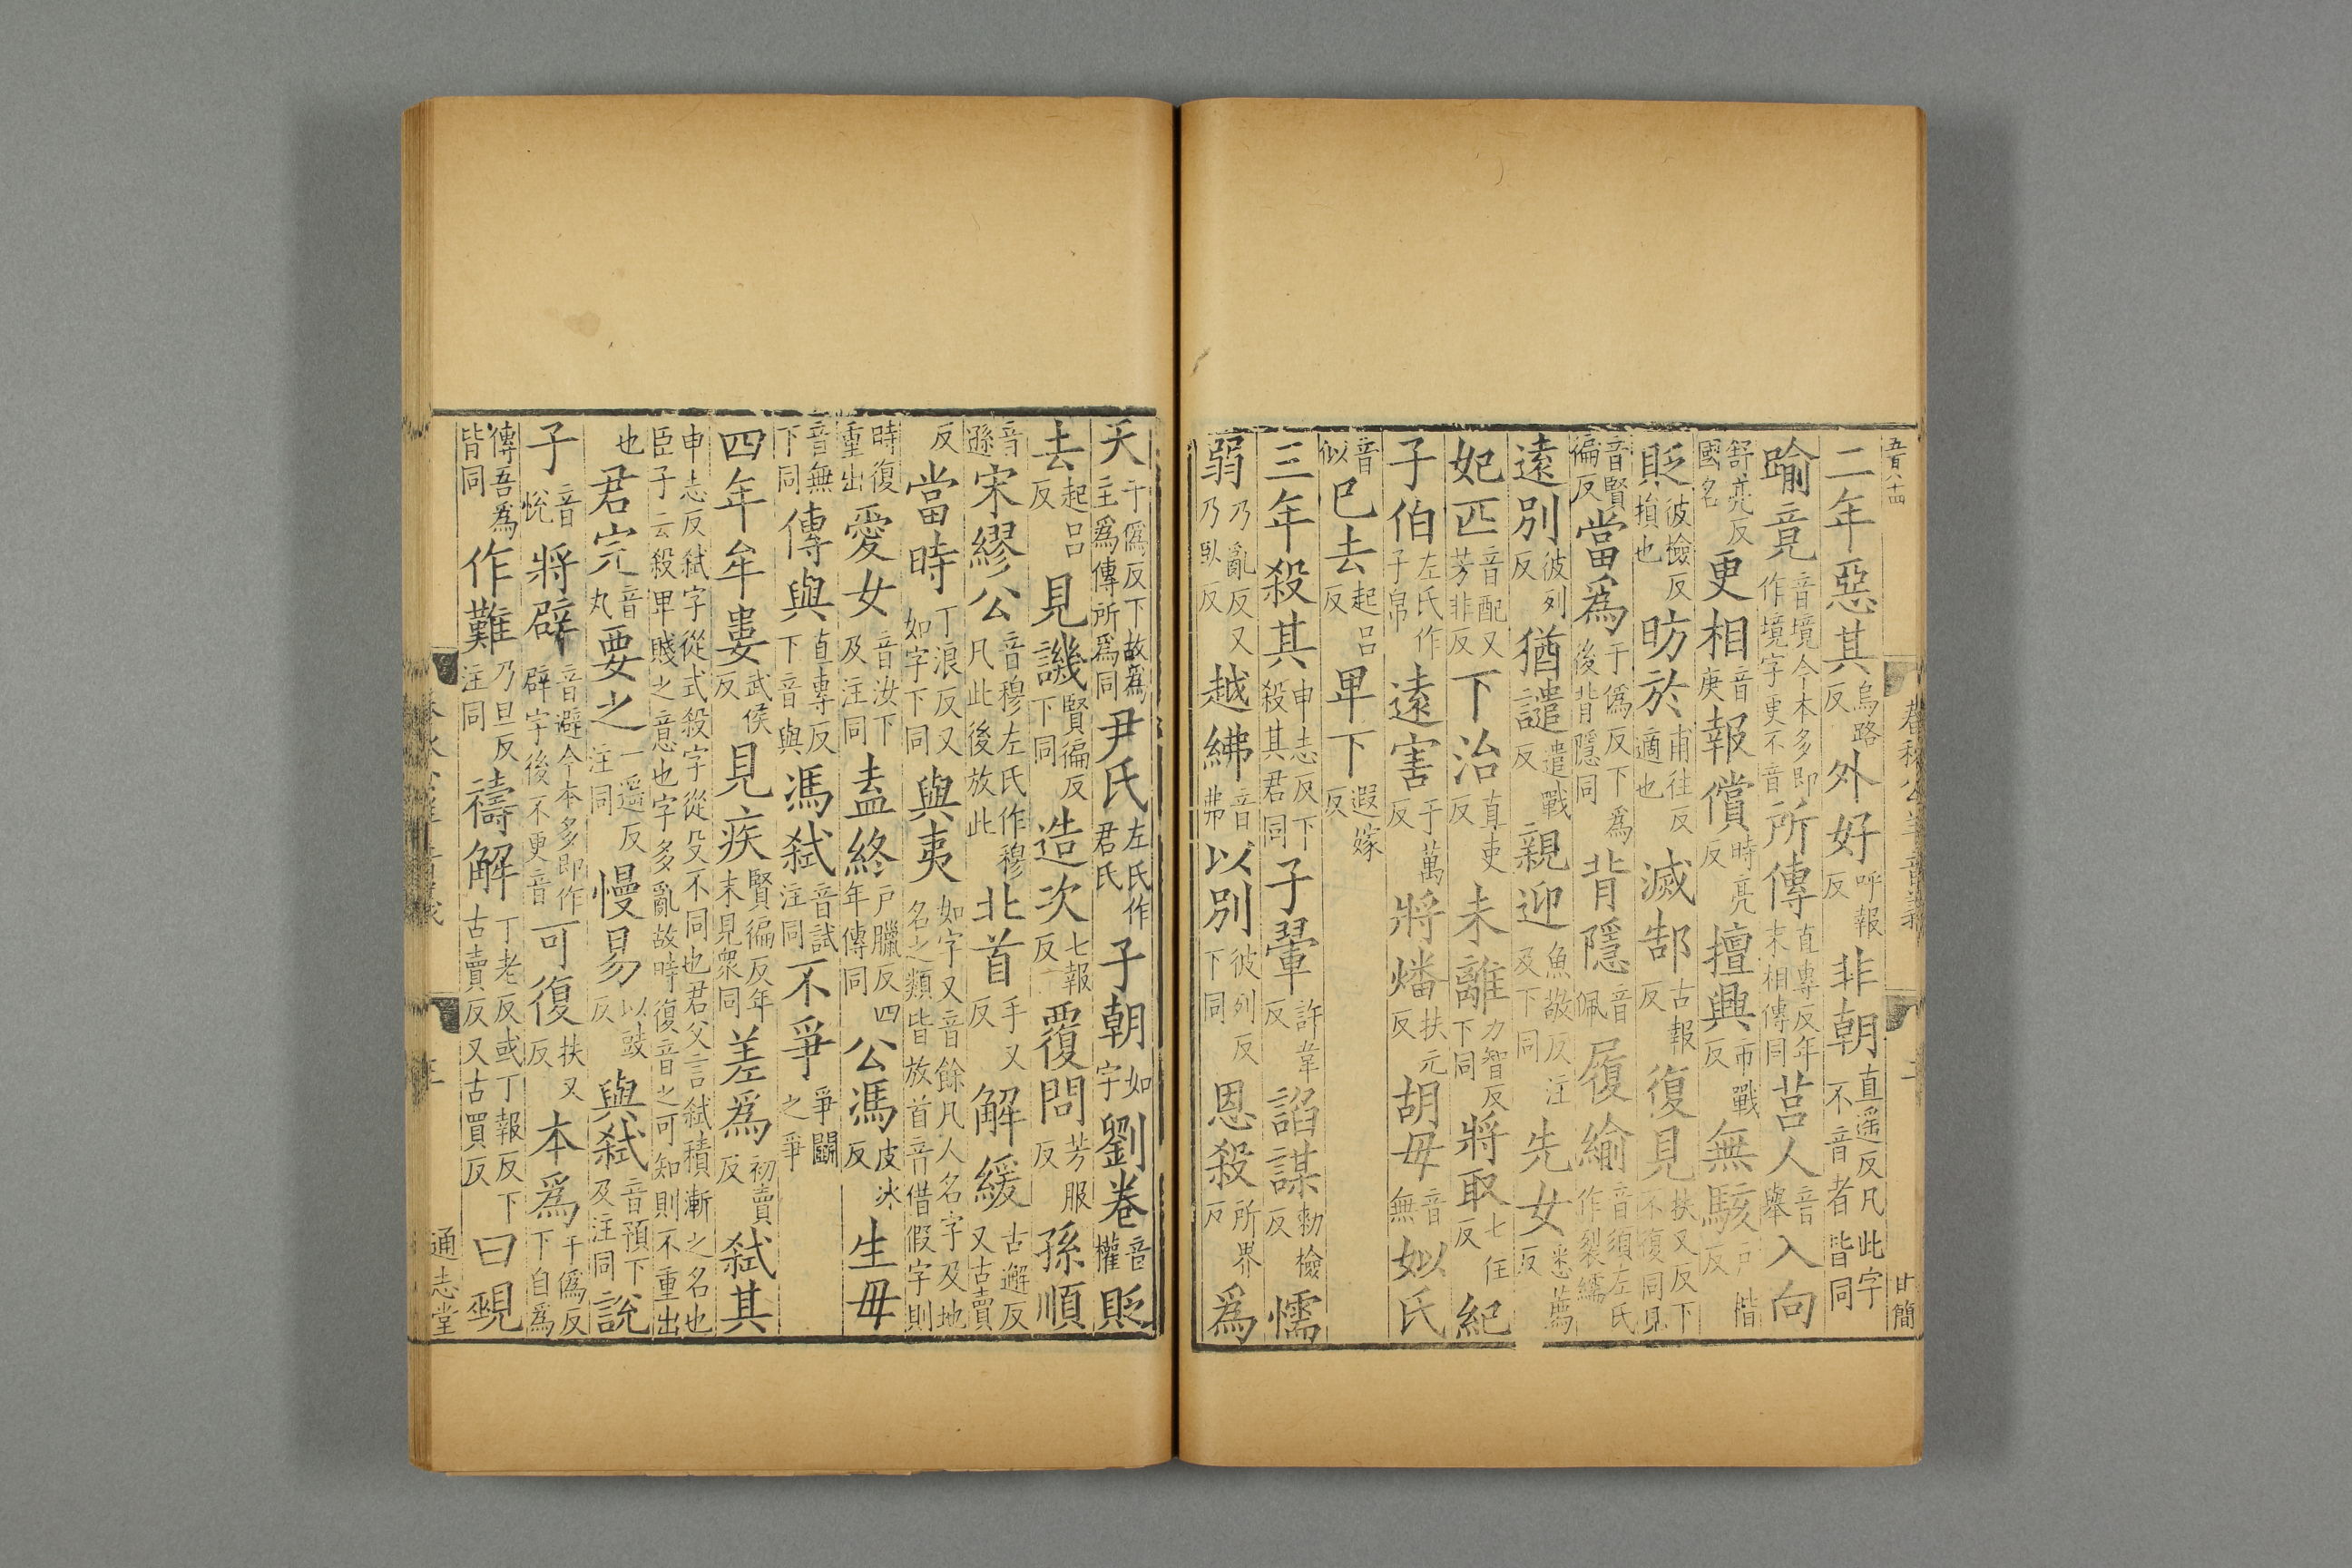 五百八十四
廿簡
二年惡其烏路反外好呼報反非朝直遥反凡此字不音者皆同
踰竟音境今本多即作境字更不音所傳直專反年末相傳同莒人音舉入向
舒亮反國名更相音庚報償時亮反擅興市戰反無駭戶楷反
貶彼檢反損也昉於甫往反適也滅郜古報反復見扶又反下不復同見
音賢徧反當爲于僞反下爲後背隱同背隱音佩履緰音須左氏作裂繻
遠別彼列反猶譴遣戰反親迎魚敬反注及下同先女悉薦反
妃匹音配又芳非反下治直吏反未離力智反下同將取七住反紀
子伯左氏作子帛遠害于萬反將燔扶元反胡毋音無姒氏
音似巳去起呂反卑下遐嫁反
三年殺其申志反下殺其君同子翬許韋反諂謀勑檢反懦
弱乃亂反又乃臥反越紼音弗以別彼列反下同恩殺所界反爲
天于僞反下故爲主爲傳所爲同尹氏左氏作君氏子朝如字劉卷音權貶
去起呂反見譏賢徧反下同造次七報反覆問芳服反孫順
音遜宋繆公音穆左氏作穆凡此後放此北首手又反解緩古邂反又古賣
反當時丁浪反又如字下同與夷如字又音餘凡人名字及地名之類皆放首音借假字則
時復重出愛女音汝下及注同盍終戶臘反四年傳同公馮皮冰反生毋
音無下同傳與直專反下音與馮弒音試注同不爭爭鬭之爭
四年牟婁武侯反見疾賢徧反年末見衆同差爲初賣反弒其
申志反弒字從式殺字從殳不同也君父言弒積漸之名也臣子云殺卑賤之意也字多亂故時復音之可知則不重出
也君完音丸要之一遥反注同慢易以豉反與弒音預下及注同說
子音悅將辟音避今本多即作辟字後不更音可復扶又反本爲于僞反下自爲
傳吾爲皆同作難乃旦反注同禱解丁老反或丁報反下古賣反又古買反曰覡
通志堂